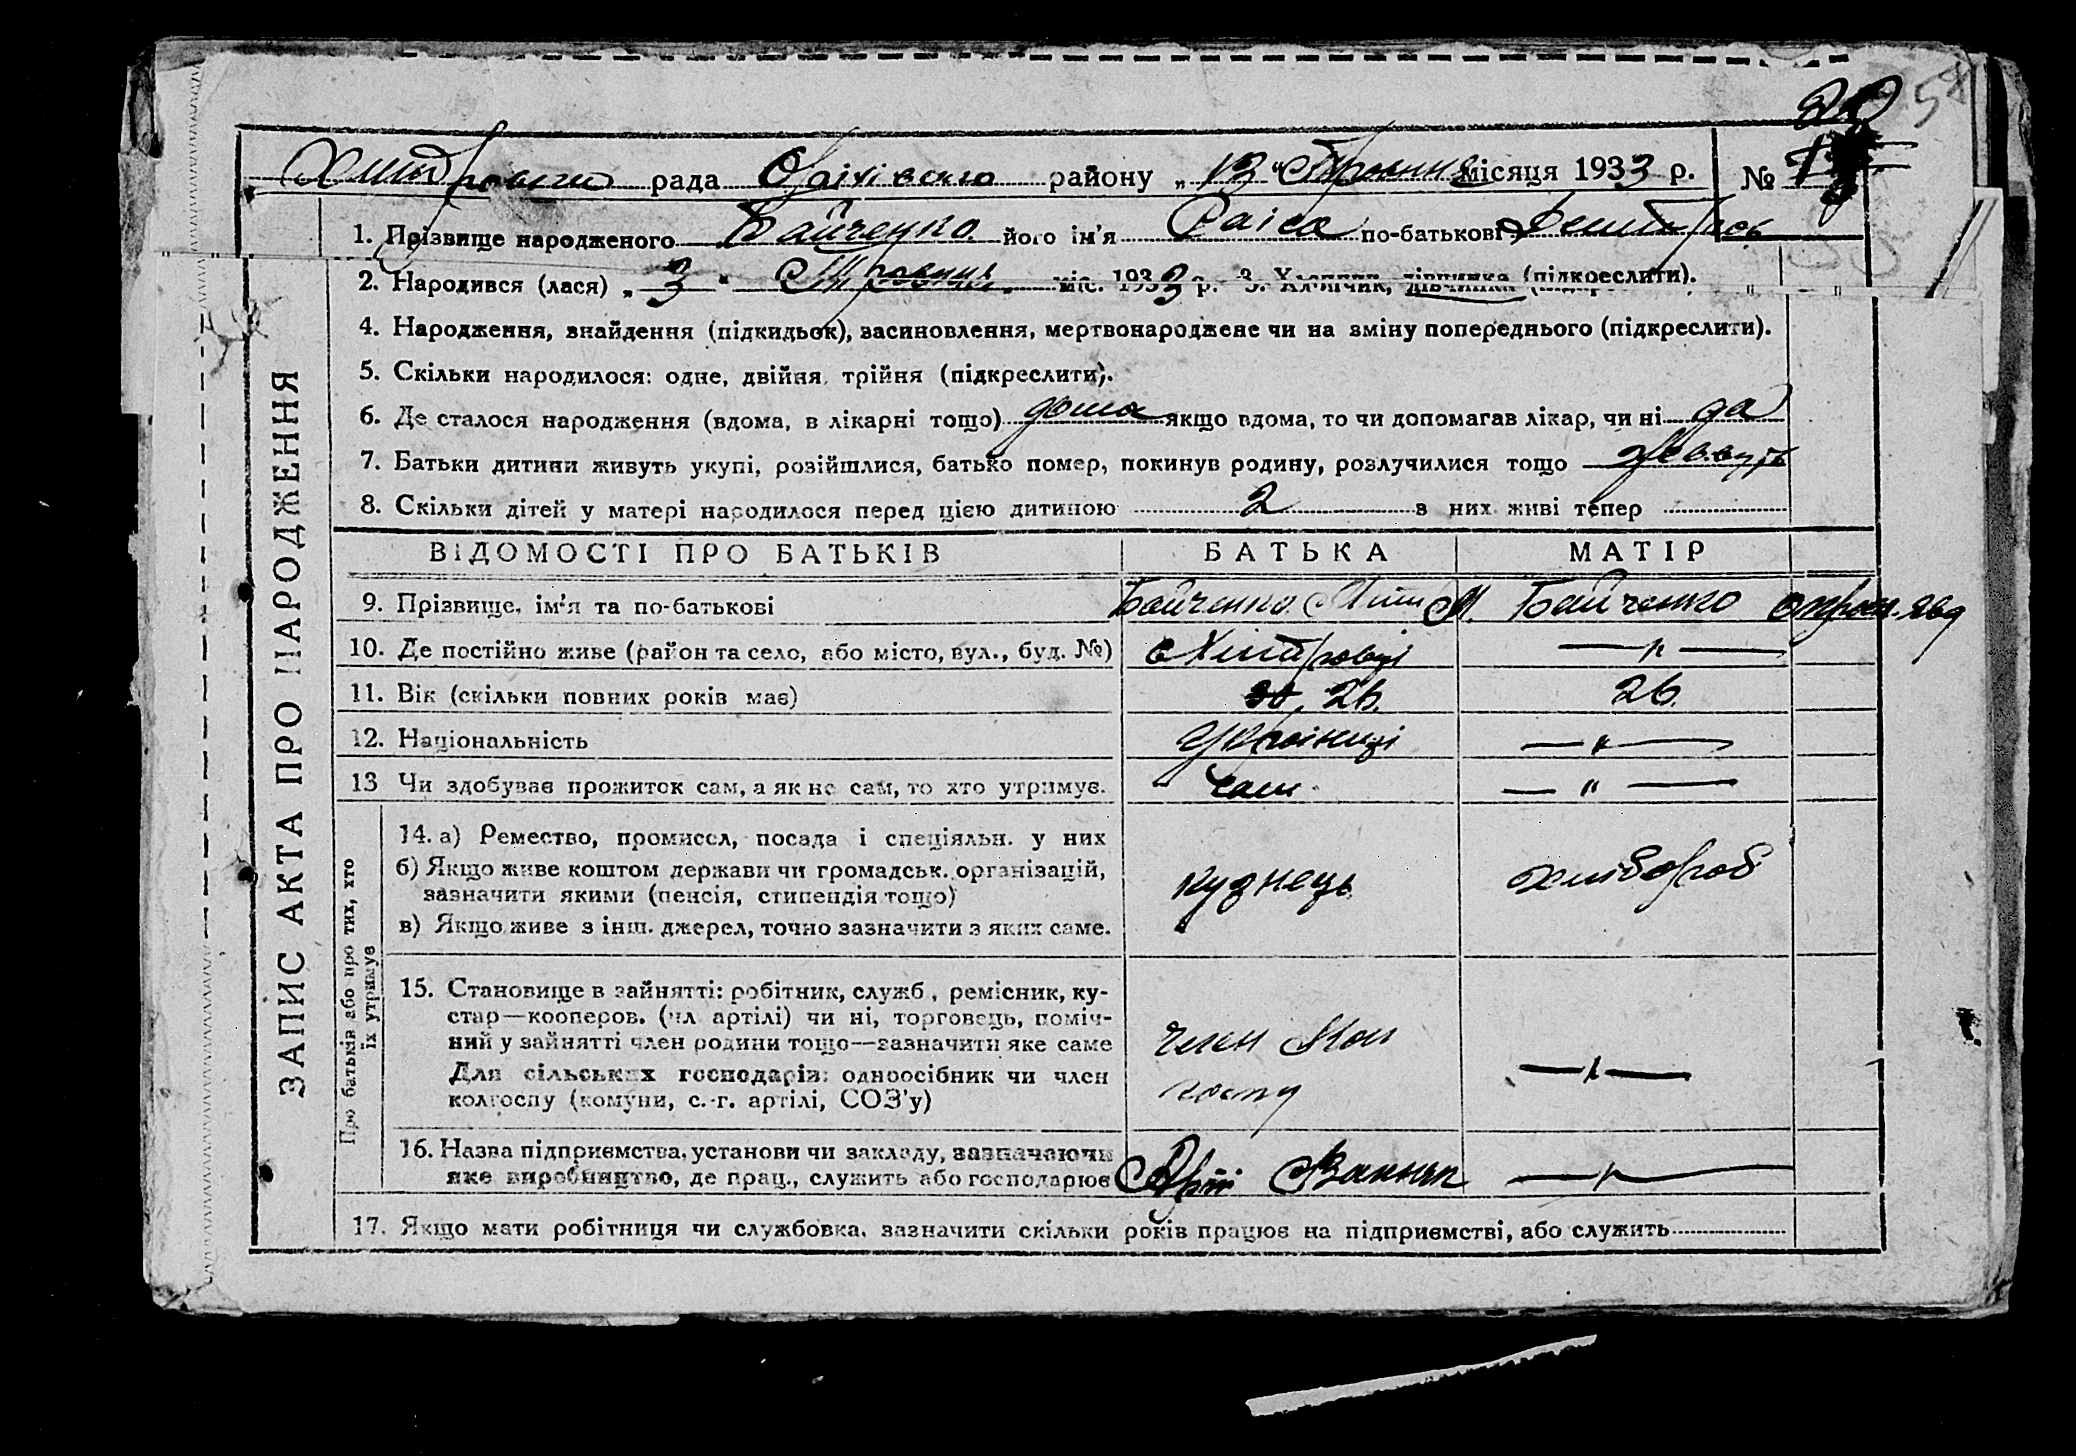 рада Оріхівского району „ 13 “ Травня місяця 1933 р. №
1. Прізвище народженого Байченко його ім'я Раіса по-батькові
2. Народився (лася) „ 3 “ Травня міс. 1933 р. 3. Хлопчик, дівчинка (підкреслити).
4. Народження, знайдення (підкидьок), засиновлення, мертвонароджене чи на зміну попереднього (підкреслити).
5. Скільки народилося: одне, двійня, трійня (підкреслити).
6. Де сталося народження (вдома, в лікарні тощо) дома якщо вдома, то чи допомагав лікар, чи ні да
7. Батьки дитини живуть укупі, розійшлися, батько помер, покинув родину, розлучилися тощо живуть
8. Скільки дітей у матері народилося перед цією дитиною 2 з них живі тепер
ЗАПИС АКТА ПРО НАРОДЖЕННЯ
ВІДОМОСТІ ПРО БАТЬКІВ БАТЬКА МАТІР
9. Прізвище, ім'я та по-батькові Байченко М. Байченко
10. Де постійно живе (район та село, або місто, вул., буд. №) — " —
11. Вік (скільки повних років має) 26. 26.
12. Національність Украінці — " —
13 Чи здобуває прожиток сам, а як не сам, то хто утримує. сам — " —
Про батьків або про тих, хто
їх утримує
14. а) Ремество, промисел, посада і спеціяльн. у них
б) Якщо живе коштом держави чи громадськ. організацій,
зазначити якими (пенсія, стипендія тощо) кузнець хлібороб
в) Якщо живе з інш. джерел, точно зазначити з яких саме.
15. Становище в зайнятті: робітник, служб., ремісник, ку-
стар—кооперов. (чл. артілі) чи ні, торговець, поміч-
ний у зайнятті член родини тощо—зазначити яке саме член Кол
Для сільських господарів: одноосібник чи член
колгоспу (комуни, с.-г. артілі, СОЗ'у) госпу — " —
16. Назва підприємства, установи чи закладу, зазначаючи
яке виробництво, де прац., служить або господарює — " —
17. Якщо мати робітниця чи службовка, зазначити скільки років працює на підприємстві, або служить